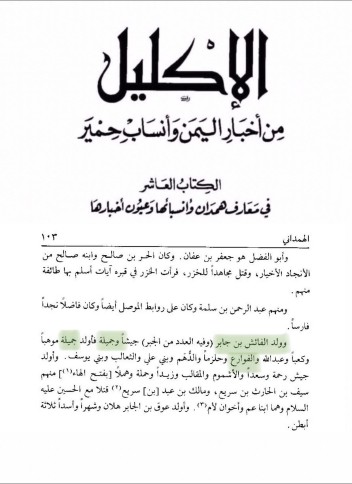 الإكليل
من أخبار اليمن وأنساب حمير
الكتاب العاشر
في معارف همدان وأنسابها وعيون أخبارها
الهمداني ١٠٣
وأبو الفضل هو جعفر بن عفان. وكان الحر بن صالح وابنه صالح من
الأنجاد الأخيار، وقتل مجاهداً للخزر، فرأت الخزر في قبره آيات أسلم بها طائفة
منهم.
ومنهم عبد الرحمن بن سلمة وكان على روابط الموصل أيضاً وكان فاضلاً نجداً
فارساً.
وولد الفائش بن جابر (وفيه العدد من الجبر) جيشاً وجميلة فأولد جميلة موهباً
وكعباً وعبدالله والفوارع وحلزماً والدُّهَم وبني علي والثعالب وبني يوسف. وأولد
جيش رحمة وسعداً والأشموم والمقالب وزيداً وحملة وهملاً [بفتح الهاء(١)] منهم
سيف بن الحارث بن سريع، ومالك بن عبد [بن] سريع(٢) قتلا مع الحسين عليه
السلام وهما ابنا عم وأخوان لأم(٣). وأولد عوق بن الجابر هلان وشهراً وأسداً ثلاثة
أبطن.